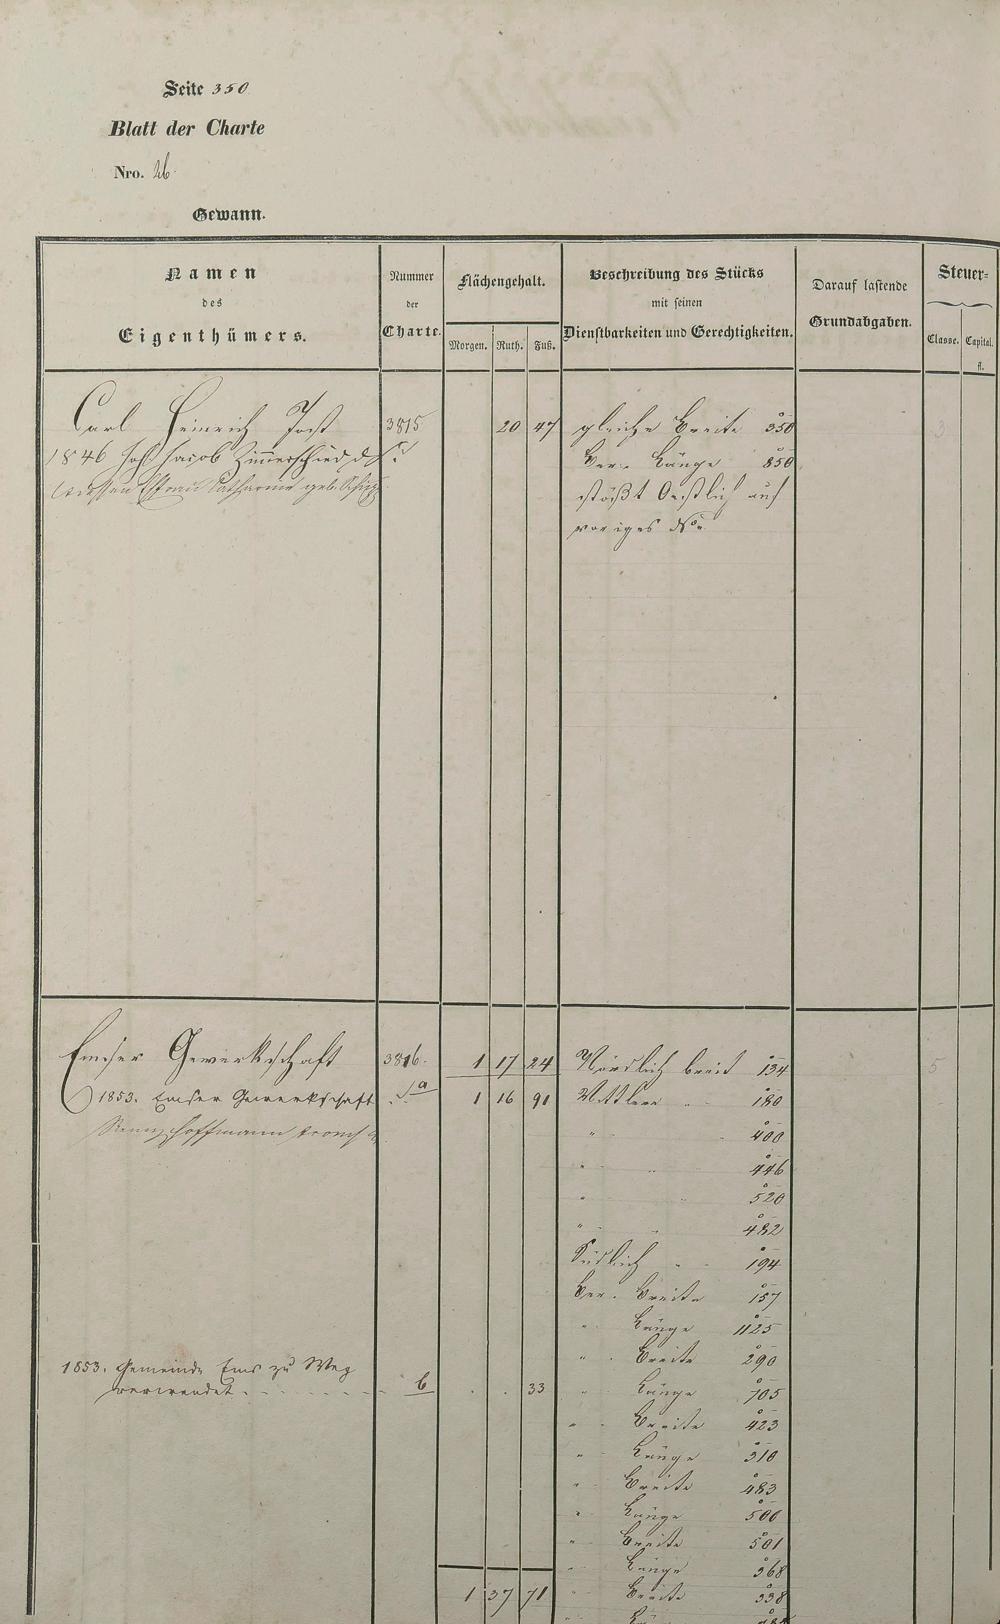 Seite 350
Blatt der Charte
Nro. 26
Gewann.
Namen
des
Eigenthümers.
Nummer
der
Charte.
Flächengehalt.
Morgen. Ruth. Fuß.
Beschreibung des Stücks
mit seinen
Dienstbarkeiten und Gerechtigkeiten.
Darauf lastende
Grundabgaben.
Steuer=
Classe. Capital.
fl.
Carl Heinrich Jost 3815 20 47 gleiche Breite 350 3
1846 Joh. Jacob Zimmerschied Ber. Länge 850
dessen Ehefrau Catharine geb. stößt Oestlich auf
voriges No.
Emser Gewerkschaft 3816. 1 17 24 Nördlich breit 134 5
1853. Emser Gewerkschaft a 1 16 91 Mittlere " 180
Hoffmann " 400
" " 446
" " 520
" " 482
Südlich " 194
Ber. Breite 157
" Länge 1125
1853. Gemeinde Ems zu Weg " Breite 290
verwendet b . . 33 " Länge 705
" Breite 423
" Länge 310
" Breite 483
" Länge 500
" Breite 501
" Länge 368
1 37 71 " Breite 338